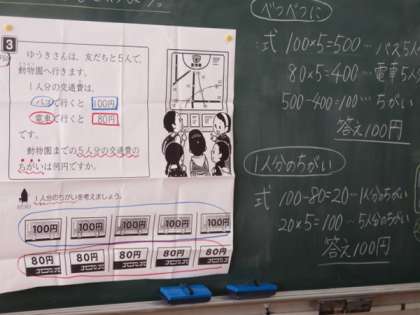 3
ゆうきさんは、友だちと5人で、
動物園へ行きます。
1人分の交通費は、
バスで行くと 100円
電車で行くと 80円
です。
動物園までの5人分の交通費の
ちがいは何円ですか。
1人分のちがいを考えましょう。
100円 100円 100円 100円 100円
80円 80円 80円 80円 80円
べつべつに
式 100×5=500…バス5人
80×5=400…電車5人
500-400=100…ちがい
答え100円
1人分のちがい
式 100-80=20…1人分のちがい
20×5=100…5人分のちがい
答え100円